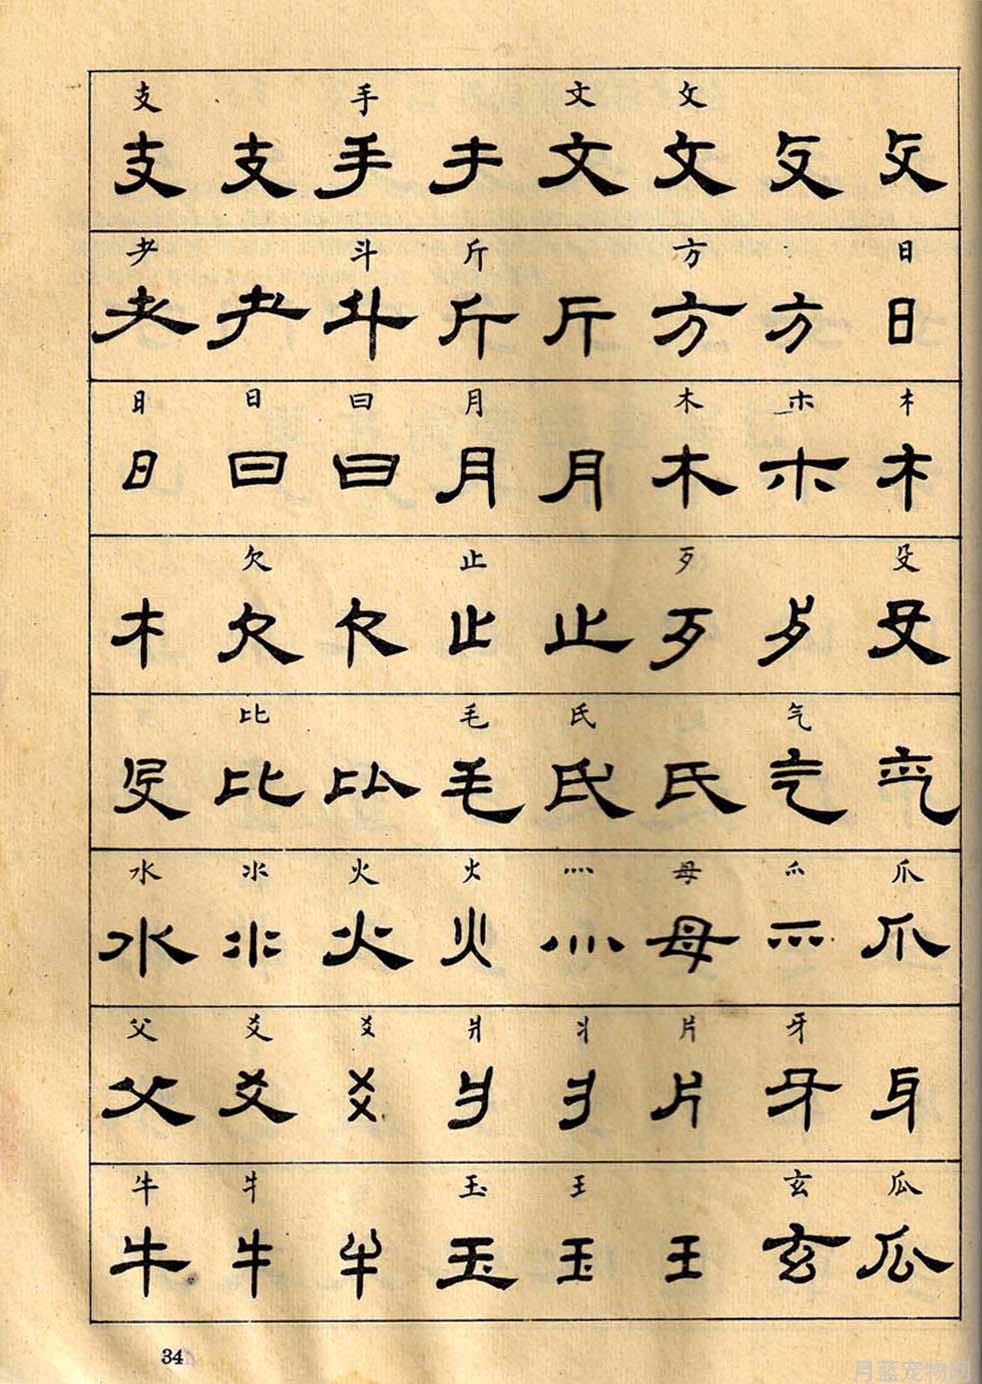 支 手 文 攵
支 支 手 手 文 攵 攵 攵
耂 斗 斤 方 日
耂 耂 斗 斤 斤 方 方 日
日 日 曰 月 木 朩 木
日 曰 曰 月 月 木 朩 木
欠 止 歹 殳
木 欠 欠 止 止 歹 歹 殳
比 毛 氏 气
殳 比 比 毛 氏 氏 气 气
水 氺 火 火 灬 母 爫 爪
水 氺 火 火 灬 母 爫 爪
父 爻 爻 爿 丬 片 牙
父 爻 爻 爿 丬 片 牙 牙
牛 牜 玉 王 玄 瓜
牛 牛 牛 玉 玉 王 玄 瓜
34
月蓝宠物网